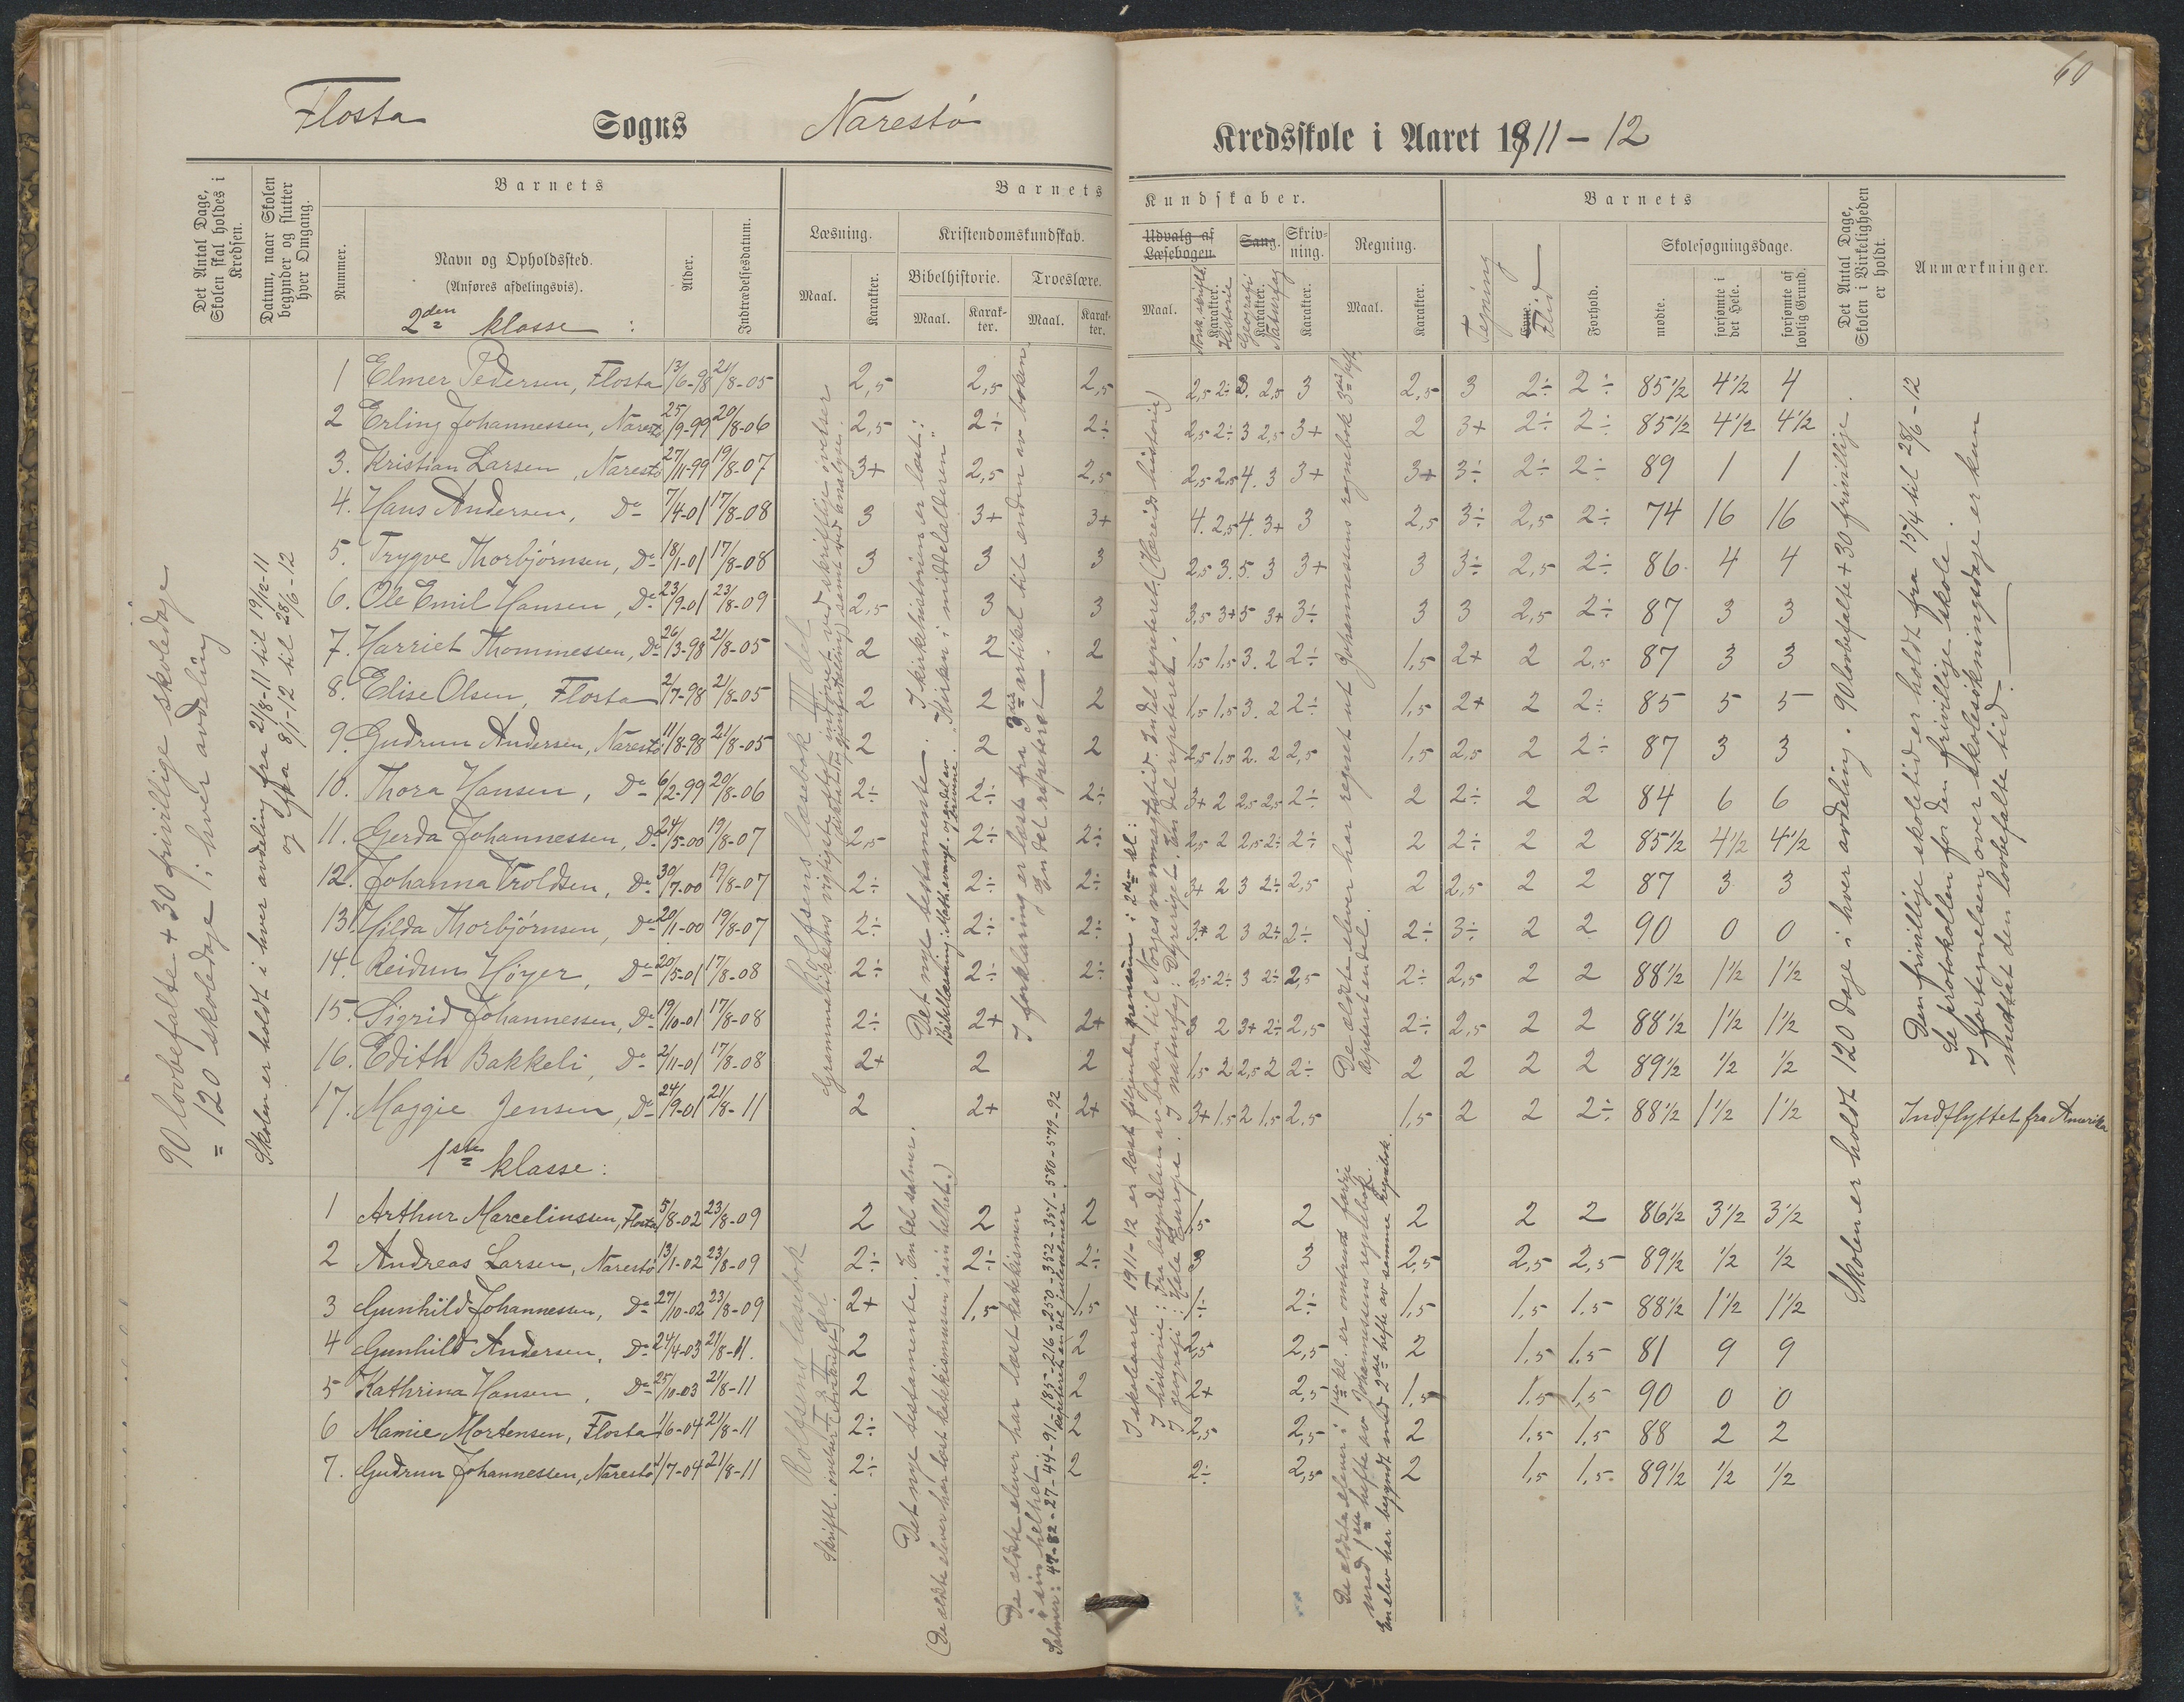 60
Flosta Sogns Narestø Kredsskole i Aaret 1911-12
Det Antal Dage, Skolen skal holdes i Kredsen.
Datum, naar Skolen begynder og slutter hver Omgang.
Barnets
Nummer.
Navn og Opholdssted.
(Anføres afdelingsvis).
Alder.
Indtrædelsesdatum.
Barnets Kundskaber.
Læsning.
Maal.
Karakter.
Kristendomskundskab.
Bibelhistorie.
Maal.
Karakter.
Troeslære.
Maal.
Karakter.
Udvalg af Læsebogen.
Maal.
Norsk skriftl.
Karakter.
Historie
Sang.
Geografi
Karakter.
Naturfag
Skrivning.
Karakter.
Regning.
Maal.
Karakter.
Barnets
Tegning
Evne.
Flid
Forhold.
Skolesøgningsdage.
mødte.
forsømte i det Hele.
forsømte af lovlig Grund.
Det Antal Dage, Skolen i Virkeligheden er holdt.
Anmærkninger.
90 lovbefalte + 30 frivillige skoledage
= 120 skoledage i hver avdeling
Skolen er holdt i hver avdeling fra 21/8-11 til 19/12-11
og fra 8/1-12 til 28/6-12
2den klasse :
1 Elmer Pedersen, Flosta 13/6-98 21/8-05 2,5 2,5 2,5 2,5 2÷ 3. 2,5 3 2,5 3 2÷ 2÷ 85½ 4½ 4
2 Erling Johannessen, Narestø 25/9-99 20/8-06 2,5 2÷ 2÷ 2,5 2÷ 3 2,5 3+ 2 3+ 2÷ 2÷ 85½ 4½ 4½
3. Kristian Larsen, Narestø 27/11-99 19/8-07 3+ 2,5 2,5 2,5 2,5 4. 3 3+ 3+ 3÷ 2÷ 2÷ 89 1 1
4. Hans Andersen, Do 7/4-01 17/8-08 3 3+ 3+ 4. 2,5 4. 3+ 3 2,5 3÷ 2,5 2÷ 74 16 16
5. Trygve Thorbjørnsen, Do 18/1-01 17/8-08 3 3 3 2,5 3. 5. 3 3+ 3 3÷ 2,5 2÷ 86. 4 4
6. Ole Emil Hansen, Do 23/9-01 23/8-09 2,5 3 3 3,5 3+ 5 3+ 3÷ 3 3 2,5 2÷ 87 3 3
7. Harriet Thommessen, Do 26/3-98 21/8-05 2 2 2 1,5 1,5 3. 2 2÷ 1,5 2+ 2 2,5 87 3 3
8. Elise Olsen, Flosta 2/7-98 21/8-05 2 2 2 1,5 1,5 3. 2 2÷ 1,5 2+ 2 2÷ 85 5 5
9. Gudrun Andersen, Narestø 11/8-98 21/8-05 2 2 2 2,5 1,5 2. 2 2,5 1,5 2,5 2 2÷ 87 3 3
10. Thora Hansen, Do 6/2-99 20/8-06 2÷ 2÷ 2÷ 3+ 2 2,5 2,5 2÷ 2 2÷ 2 2 84 6 6
11. Gerda Johannessen, Do 24/5-00 19/8-07 2,5 2÷ 2÷ 2,5 2 2,5 2÷ 2÷ 2 2÷ 2 2 85½ 4½ 4½
12. Johanna Troldsen, Do 30/7-00 19/8-07 2÷ 2÷ 2÷ 3+ 2 3 2÷ 2,5 2 2,5 2 2 87 3 3
13. Hilda Thorbjørnsen, Do 20/11-00 19/8-07 2÷ 2÷ 2÷ 3+ 2 3 2÷ 2÷ 2÷ 3÷ 2 2 90 0 0
14. Reidun Høyer, Do 20/5-01 17/8-08 2÷ 2÷ 2÷ 2,5 2÷ 3 2÷ 2,5 2÷ 2,5 2 2 88½ 1½ 1½
15. Sigrid Johannessen, Do 19/10-01 17/8-08 2÷ 2+ 2+ 3 2 3+ 2÷ 2,5 2÷ 2,5 2 2 88½ 1½ 1½
16. Edith Bakkeli, Do 2/11-01 17/8-08 2+ 2 2 1,5 2 2,5 2 2÷ 2 2 2 2 89½ ½ ½
17. Maggie Jensen, Do 24/9-01 21/8-11 2 2+ 2+ 3+ 1,5 2 1,5 2,5 1,5 2 2 2÷ 88½ 1½ 1½ Indflyttet fra Amerika
1ste klasse :
1 Arthur Marcelinssen, Flosta 5/8-02 23/8-09 2 2 2 1,5 2 2 2 2 86½ 3½ 3½
2 Andreas Larsen, Narestø 13/1-02 23/8-09 2÷ 2÷ 2÷ 3 3 2,5 2,5 2,5 89½ ½ ½
3 Gunhild Johannessen, Do 27/10-02 23/8-09 2+ 1,5 1,5 1÷ 2÷ 1,5 1,5 1,5 88½ 1½ 1½
4 Gunhild Andersen, Do 24/4-03 21/8-11. 2 2 2,5 2,5 2 1,5 1,5 81 9 9
5 Kathrina Hansen, Do 25/10-03 21/8-11 2 2 2+ 2,5 1,5 1,5 1,5 90 0 0
6 Mamie Mortensen, Flosta 1/6-04 21/8-11 2÷ 2 2,5 2,5 2 1,5 1,5 88 2 2
7. Gudrun Johannessen, Narestø 1/7-04 21/8-11 2÷ 2 2÷ 2,5 2 1,5 1,5 89½ ½ ½
Rolfsens læsebok III del
Grammatikkens vigtigste indøvet ved skriftlige øvelser
(diktater, gjenfortelling) samt ved analyse.
Det nye testamente. I kirkehistorien er læst:
Bibellæsning: Math. evang. og endel av brevene. "Kirken i middelalderen"
I forklaring er læst fra 3die artikel til enden av boken.
En del repetert
I skoleaaret 1911-12 er læst følgende pensum i 2den kl.:
I historie: Fra begyndelsen av boken til Norges vanmagtstid. Endel repetert. (Hæreids historie)
I geografi: Hele Europa. I naturfag: Dyreriget. En del repetert.
De ældste elever har regnet ut Johannessens regnebok 3die hefte,
repetert en del.
Rolfsens læsebok
I & II del.
Skriftl. øvelser (avskrift)
Det nye testamente. En del salmer.
(De ældste elever har læst katekismusen i sin helhet.)
De ældste elever har læst katekismen
i sin helhet
Salmer: 47-82-27-44-91-185-216-250-352-351-580-579-92
Repetert en del julesalmer
De ældste elever i 1ste kl. er omtrent færdige
med 1ste hefte av Johannessens regnebok.
En elev har begyndt med 2det hefte av samme regnebok.
Skolen er holdt 120 dage i hver avdeling. 90 lovbefalt + 30 frivillige.
Den frivillige skoletid er holdt fra 15/4 til 28/6-12
Se protokollen for den frivillige skole.
I fortegnelsen over skolesøkningsdage er kun
medtat den lovbefalte tid.